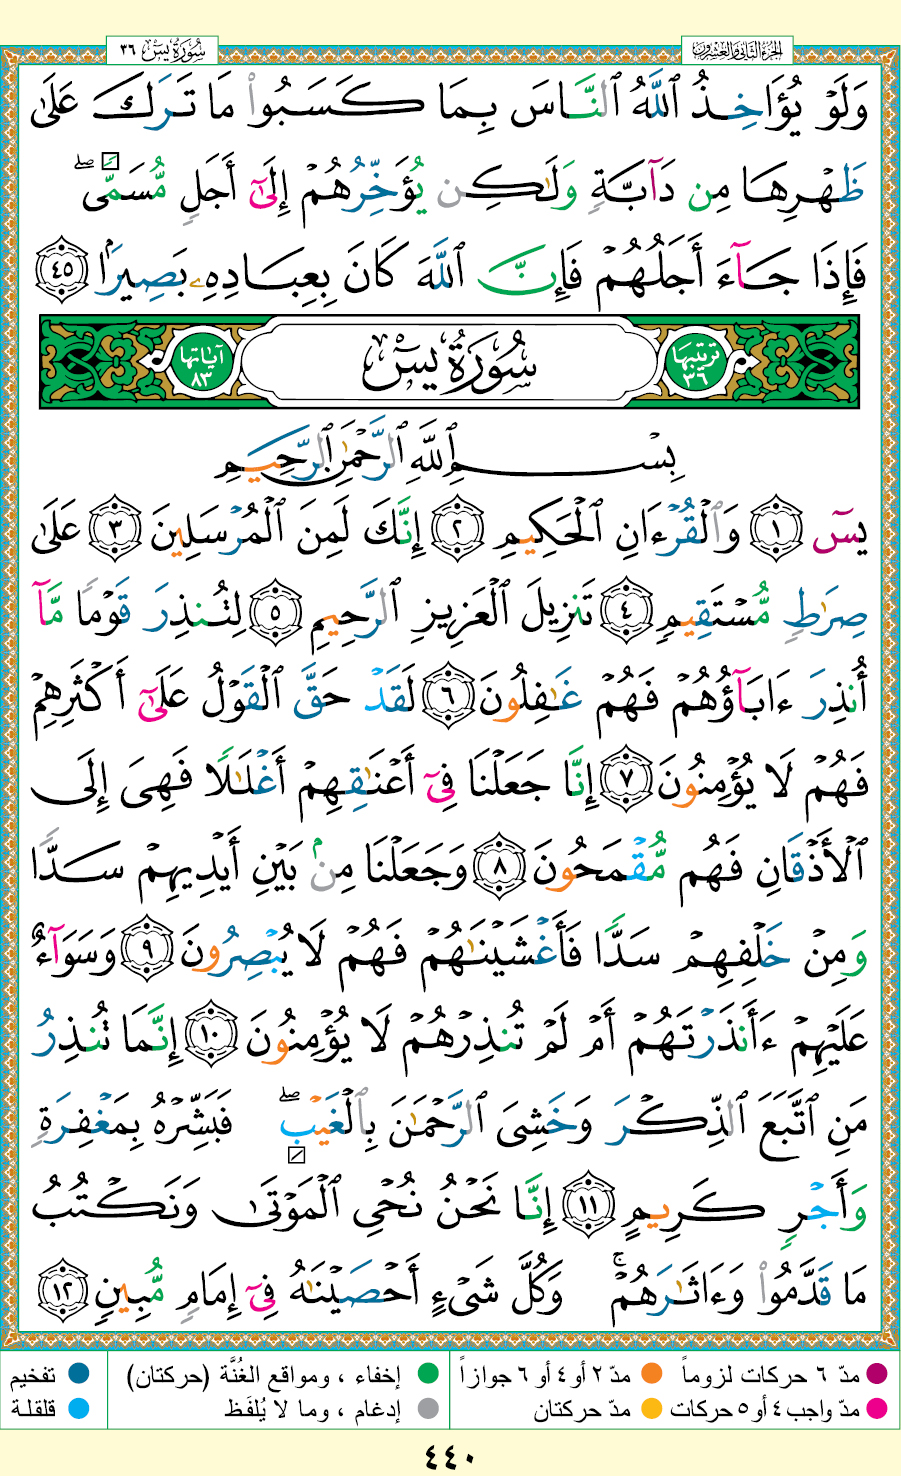 الجزء الثاني والعشرون
سُورَةُ يسٓ ٣٦
وَلَوْ يُؤَاخِذُ ٱللَّهُ ٱلنَّاسَ بِمَا كَسَبُوا۟ مَا تَرَكَ عَلَىٰ
ظَهْرِهَا مِن دَآبَّةٍ وَلَٰكِن يُؤَخِّرُهُمْ إِلَىٰٓ أَجَلٍ مُّسَمًّى ۖ
فَإِذَا جَآءَ أَجَلُهُمْ فَإِنَّ ٱللَّهَ كَانَ بِعِبَادِهِۦ بَصِيرًۢا ٤٥
ترتيبها ٣٦ سُورَةُ يسٓ آياتها ٨٣
بِسْمِ ٱللَّهِ ٱلرَّحْمَٰنِ ٱلرَّحِيمِ
يسٓ ١ وَٱلْقُرْءَانِ ٱلْحَكِيمِ ٢ إِنَّكَ لَمِنَ ٱلْمُرْسَلِينَ ٣ عَلَىٰ
صِرَٰطٍ مُّسْتَقِيمٍ ٤ تَنزِيلَ ٱلْعَزِيزِ ٱلرَّحِيمِ ٥ لِتُنذِرَ قَوْمًا مَّآ
أُنذِرَ ءَابَآؤُهُمْ فَهُمْ غَٰفِلُونَ ٦ لَقَدْ حَقَّ ٱلْقَوْلُ عَلَىٰٓ أَكْثَرِهِمْ
فَهُمْ لَا يُؤْمِنُونَ ٧ إِنَّا جَعَلْنَا فِىٓ أَعْنَٰقِهِمْ أَغْلَٰلًا فَهِىَ إِلَى
ٱلْأَذْقَانِ فَهُم مُّقْمَحُونَ ٨ وَجَعَلْنَا مِنۢ بَيْنِ أَيْدِيهِمْ سَدًّا
وَمِنْ خَلْفِهِمْ سَدًّا فَأَغْشَيْنَٰهُمْ فَهُمْ لَا يُبْصِرُونَ ٩ وَسَوَآءٌ
عَلَيْهِمْ ءَأَنذَرْتَهُمْ أَمْ لَمْ تُنذِرْهُمْ لَا يُؤْمِنُونَ ١٠ إِنَّمَا تُنذِرُ
مَنِ ٱتَّبَعَ ٱلذِّكْرَ وَخَشِىَ ٱلرَّحْمَٰنَ بِٱلْغَيْبِ ۖ فَبَشِّرْهُ بِمَغْفِرَةٍ
وَأَجْرٍ كَرِيمٍ ١١ إِنَّا نَحْنُ نُحْىِ ٱلْمَوْتَىٰ وَنَكْتُبُ
مَا قَدَّمُوا۟ وَءَاثَٰرَهُمْ ۚ وَكُلَّ شَىْءٍ أَحْصَيْنَٰهُ فِىٓ إِمَامٍ مُّبِينٍ ١٢
مدّ ٦ حركات لزوماً مدّ ٢ أو ٤ أو ٦ جوازاً إخفاء ، ومواقع الغُنَّة (حركتان) تفخيم
مدّ واجب ٤ أو ٥ حركات مدّ حركتان إدغام ، وما لا يُلفَظ قلقلة
٤٤٠